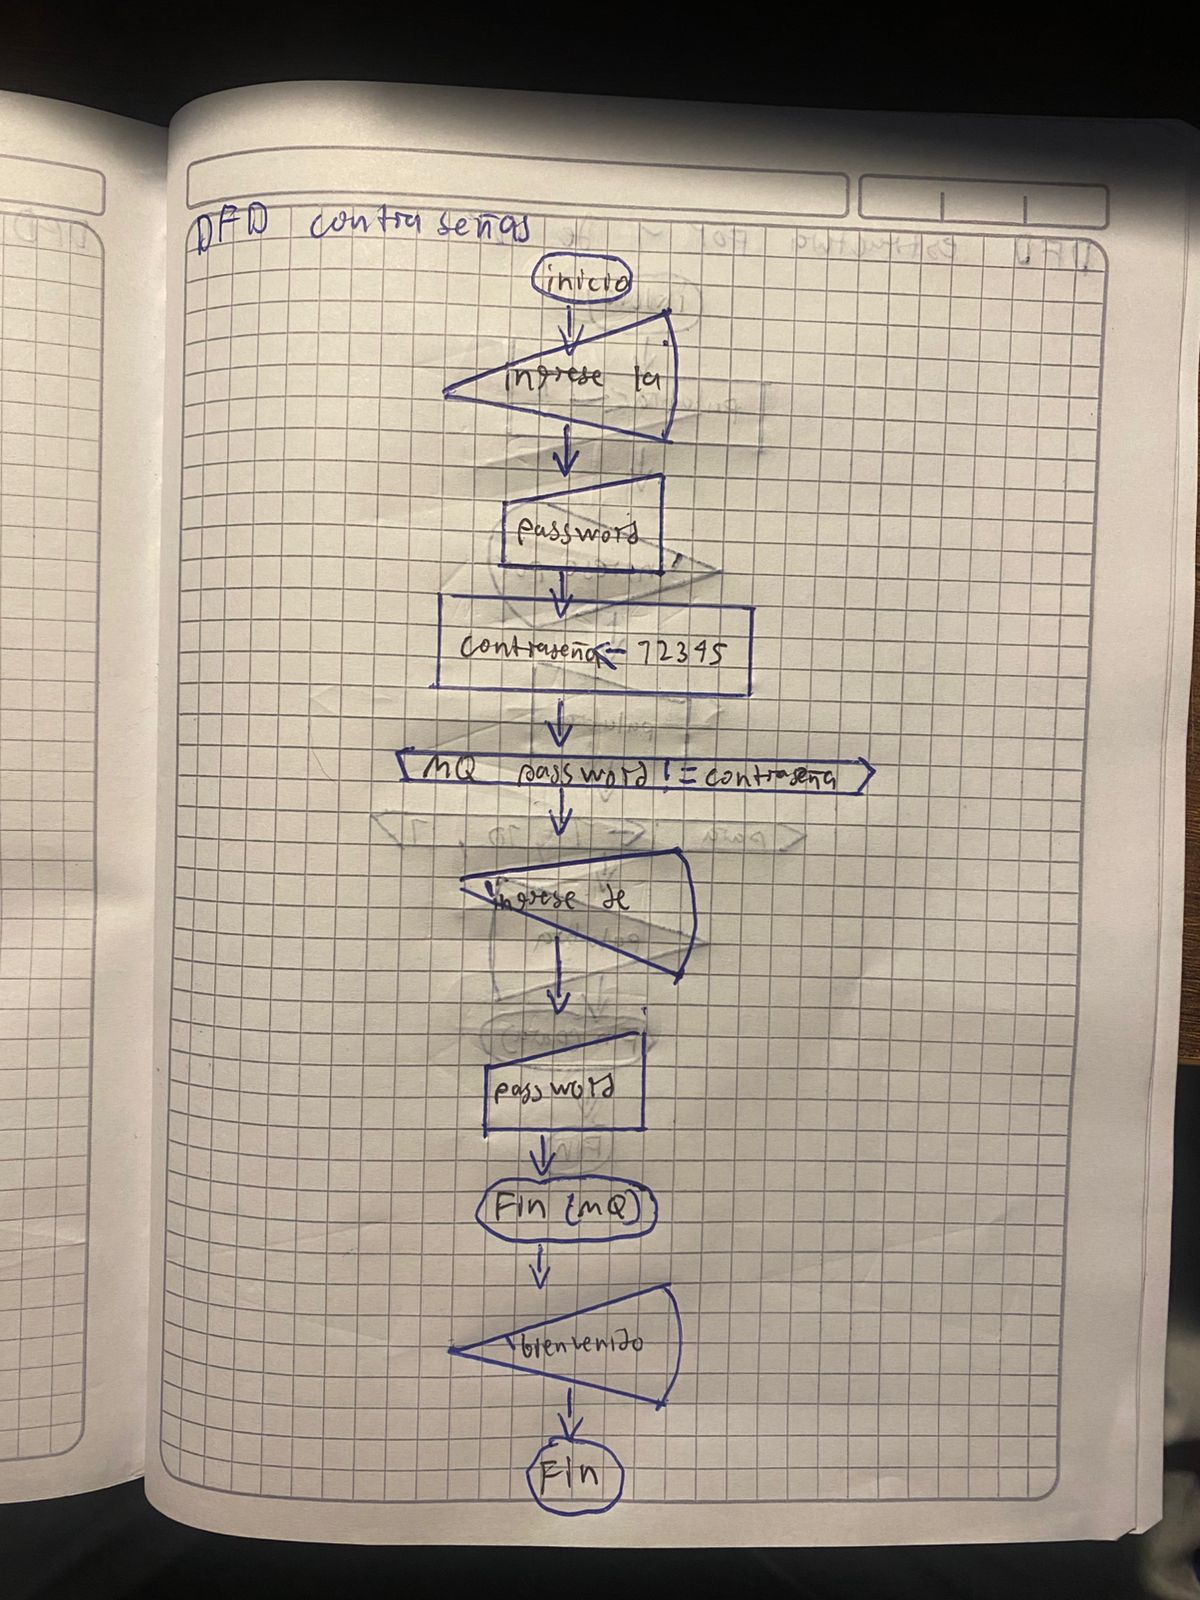 DFD contraseñas
inicio
ingrese la
password
contraseña ← 12345
MQ password != contraseña
ingrese de
password
Fin (MQ)
bienvenido
Fin